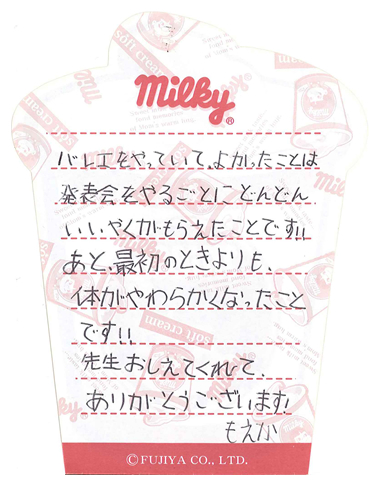 milky®
バレエをやっていて、よかったことは
発表会をやるごとにどんどん
いいやくがもらえたことです!!
あと、最初のときよりも、
体がやわらかくなったこと
です!!
先生おしえてくれて、
ありがとうございます!
もえか
©FUJIYA CO., LTD.